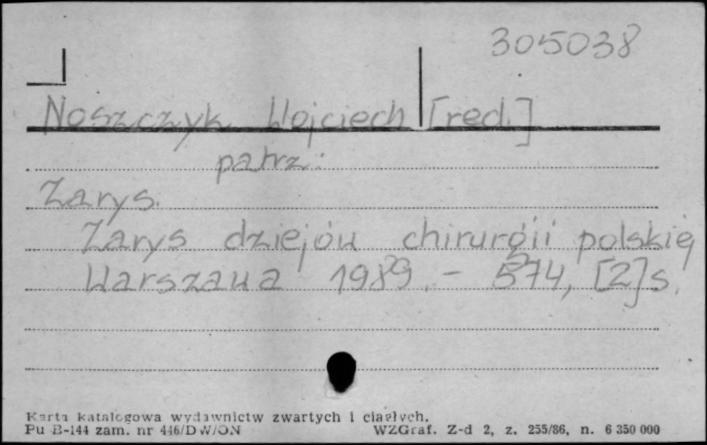 305038
Noszczyk Wojciech [red.]
patrz:
Zarys.
Zarys dziejów chirurgii polskiej
Warszawa 1989. – 574, [2] s.
Karta katalogowa wydawnictw zwartych i ciągłych.
Pu B-144 zam. nr 446/DW/ON WZGraf. Z-d 2, z. 255/86, n. 6 350 000